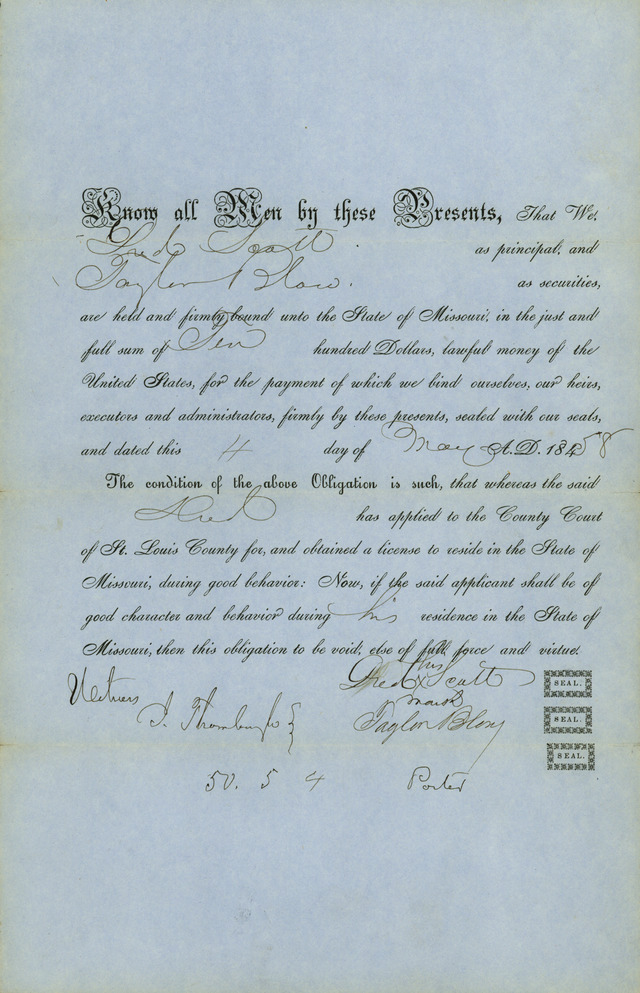 Know all Men by these Presents, That We,
Dred Scott as principal, and
Taylor Blow. as securities,
are held and firmly bound unto the State of Missouri, in the just and
full sum of Ten hundred Dollars, lawful money of the
United States, for the payment of which we bind ourselves, our heirs,
executors and administrators, firmly by these presents, sealed with our seals,
and dated this 4 day of May A.D. 18458
The condition of the above Obligation is such, that whereas the said
Dred has applied to the County Court
of St. Louis County for, and obtained a license to reside in the State of
Missouri, during good behavior: Now, if the said applicant shall be of
good character and behavior during his residence in the State of
Missouri, then this obligation to be void, else of full force and virtue.
his
Dred X Scott SEAL.
mark
Witness
Taylor Blow SEAL.
SEAL.
50. 5 4 Porter